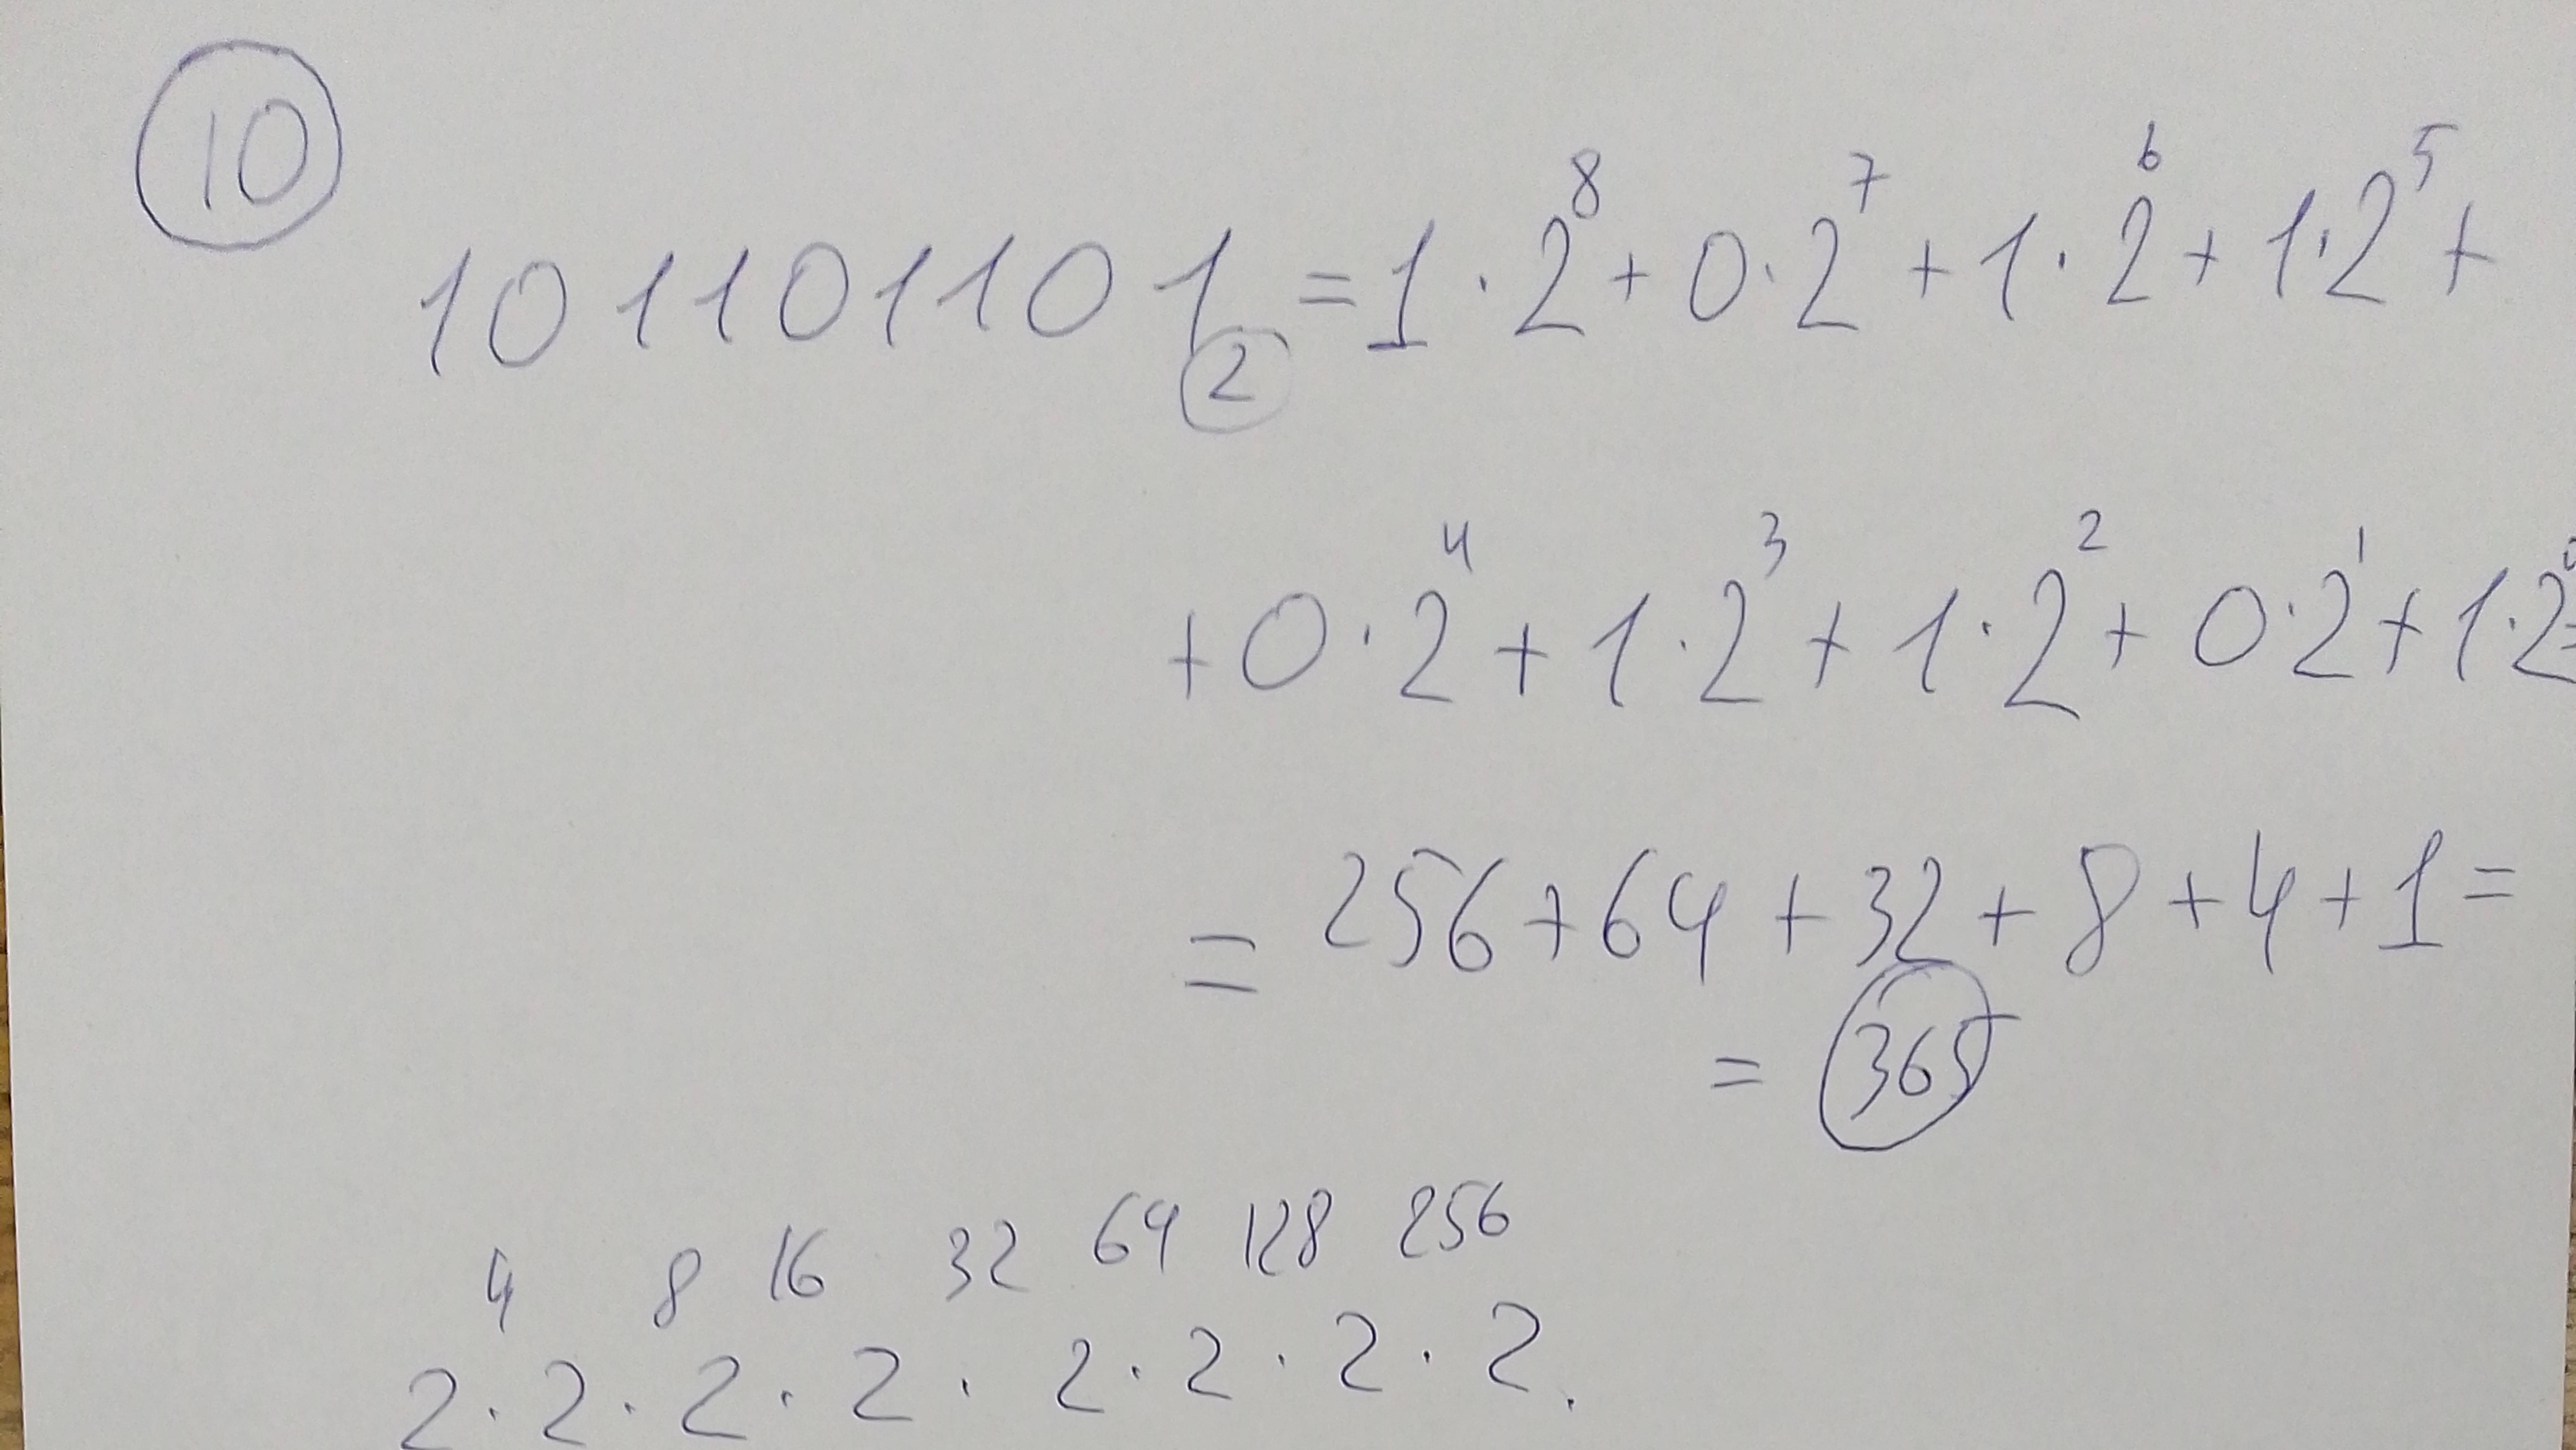 10
101101101₂ = 1·2⁸ + 0·2⁷ + 1·2⁶ + 1·2⁵ +
+ 0·2⁴ + 1·2³ + 1·2² + 0·2¹ + 1·2⁰ =
= 256 + 64 + 32 + 8 + 4 + 1 =
= 365
4 8 16 32 64 128 256
2·2·2·2·2·2·2·2.